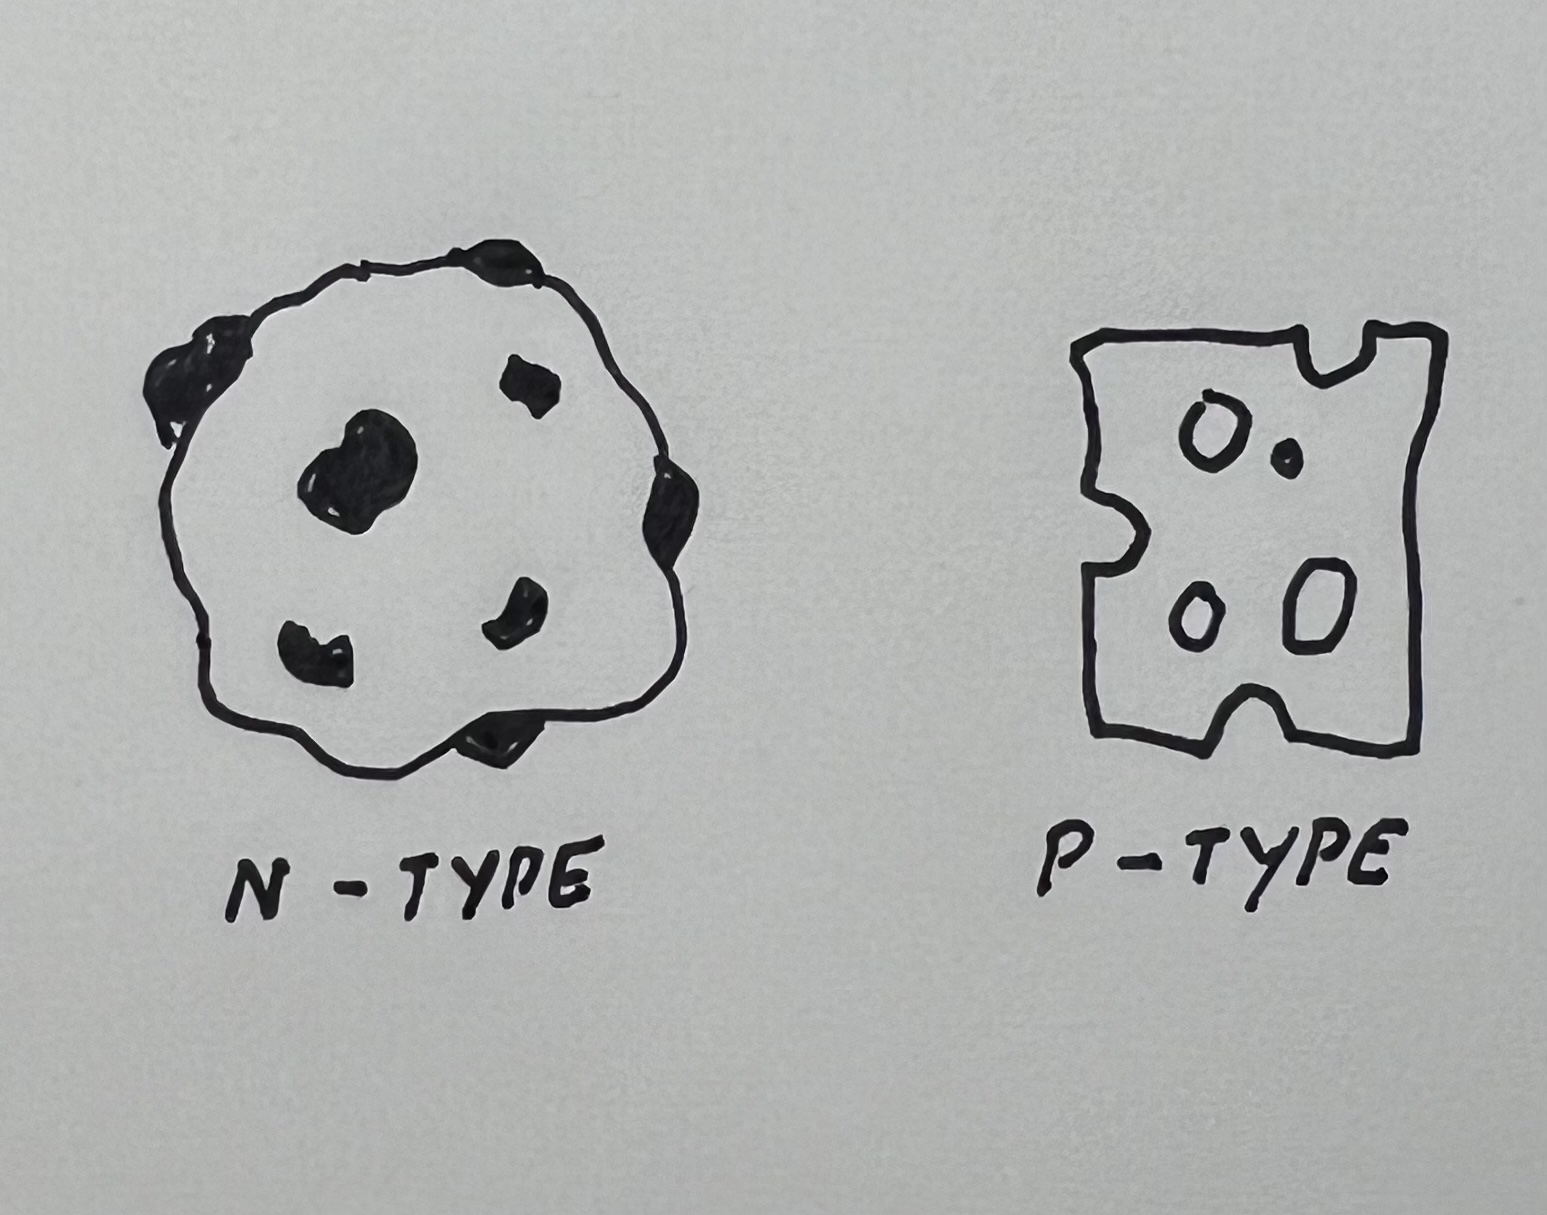 N-TYPE
P-TYPE